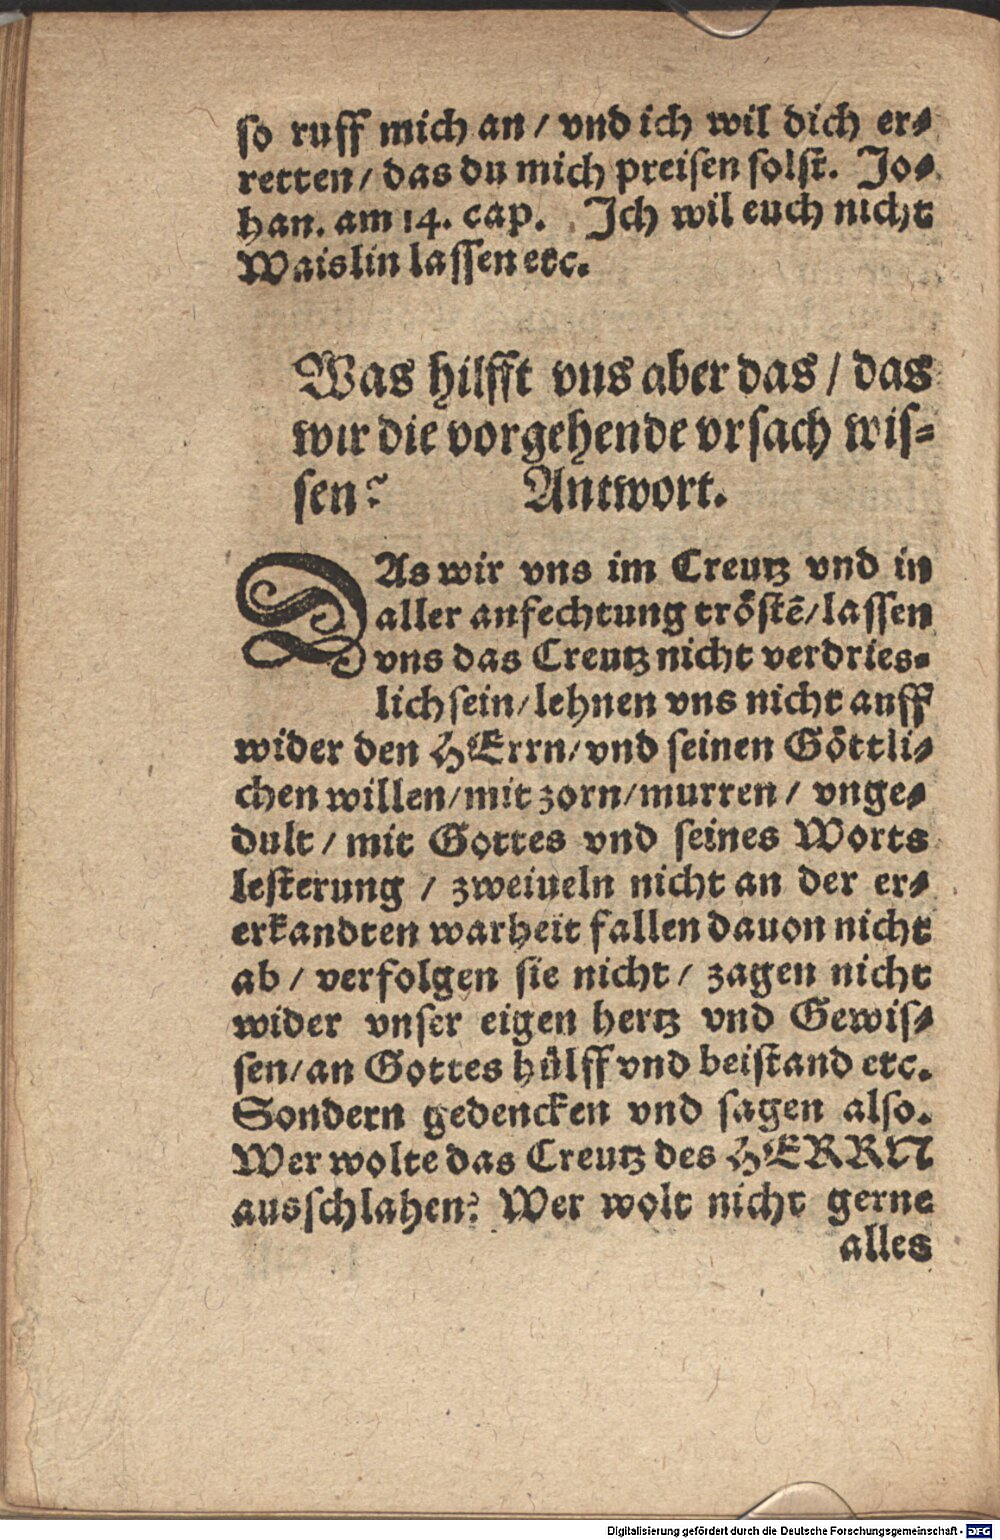 so ruff mich an / vnd ich wil dich er-
retten / das du mich preisen solst. Jo-
han. am 14. cap. Ich wil euch nicht
Waislin lassen etc.
Was hilfft vns aber das / das
wir die vorgehende vrsach wis-
sen? Antwort.
DAs wir vns im Creutz vnd in
aller anfechtung tröstē / lassen
vns das Creutz nicht verdries-
lich sein / lehnen vns nicht auff
wider den HErrn / vnd seinen Göttli-
chen willen / mit zorn / murren / vnge-
dult / mit Gottes vnd seines Worts
lesterung / zweiueln nicht an der er-
erkandten warheit fallen dauon nicht
ab / verfolgen sie nicht / zagen nicht
wider vnser eigen hertz vnd Gewis-
sen / an Gottes hülff vnd beistand etc.
Sondern gedencken vnd sagen also.
Wer wolte das Creutz des HERRN
ausschlahen? Wer wolt nicht gerne
alles
Digitalisierung gefördert durch die Deutsche Forschungsgemeinschaft - DFG